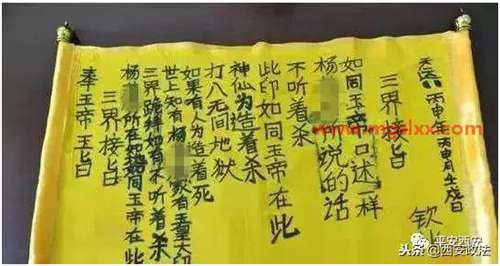 丙申月
三界接旨
钦
如同玉帝口述一样
杨 说的话
不听着杀
此印如同玉帝在此
神仙为造着杀
打八无间地狱
如果有人为造着死
世上知有杨 家有玉玺大印
三界跪拜如有不听着杀
杨 所在地如同玉帝在此
三界接旨
奉玉帝玉旨
平安西安
头条 @西安政法